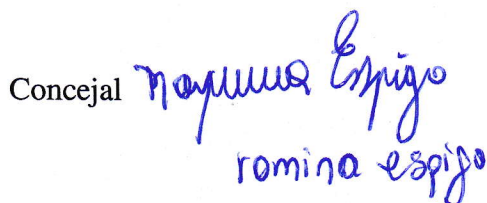 Concejal Romina Espigo
romina espigo